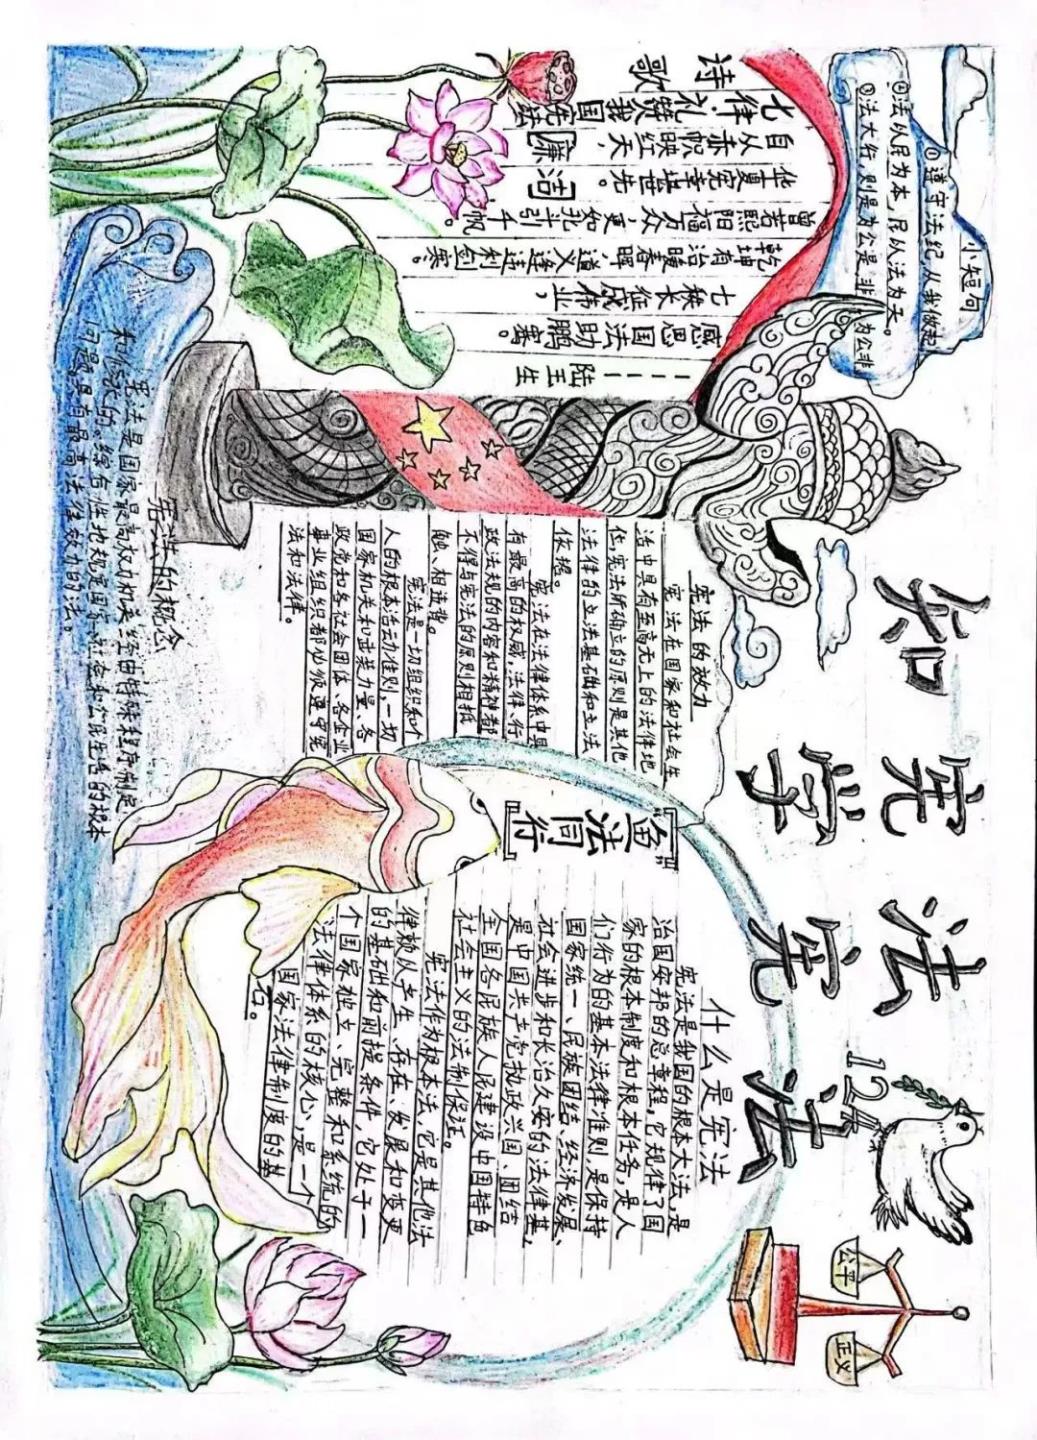 知宪法
学宪法
12.4
公平
正义
小短句
①遵守法纪从我做起
②法以民为本,民以法为天。
③法大行,则是为公是,非为公非
诗歌
七律·礼赞我国宪法
自从赤帜映红天,
华夏宪章堪世先。
曾若熙阳福万众,更如
乾坤有治暖春晖,道义
七秩长征成伟业,
感恩国法助鹏骞。
———陆王生
廉洁
宪法的效力
宪法在国家和社会生
活中具有至高无上的法律地
位,宪法所确立的原则是其他
法律的立法基础和立法
依据。
宪法在法律体系中具
有最高的权威,法律、行
政法规的内容和精神都
不得与宪法的原则相抵
触、相违背。
宪法是一切组织和个
人的根本活动准则,一切
国家机关和武装力量、各
政党和各社会团体、各企业
事业组织都必须遵守宪
法和法律。
宪法的概念
宪法是国家最高权力机关经由特殊程序制定
和修改的。综合性地规定国家、社会和公民生活的根本
问题具有最高法律效力的法。
『鱼法同行』
什么是宪法
宪法是我国的根本大法,是
治国安邦的总章程,它规律了国
家的根本制度和根本任务,是人
们行为的基本法律准则是保持
国家统一、民族团结、经济发展、
社会进步和长治久安的法律基,
是中国共产党执政兴国、团结
全国各民族人民建设中国特色
社会主义的法制保证。
宪法作为根本法,它是其他法
律赖从产生、存在、发展和变更
的基础和前提条件,它处于一
个国家独立、完整和系统的
法律体系的核心,是一个
国家法律制度的基
石。